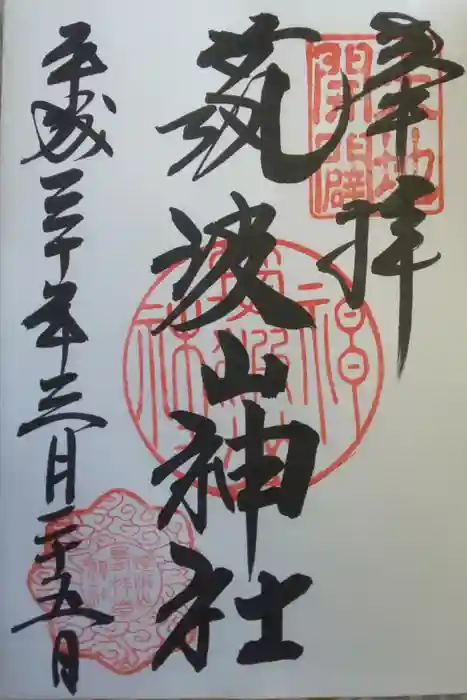 奉拝
天地
開闢
筑波山神社
平成三十年三月二十五日